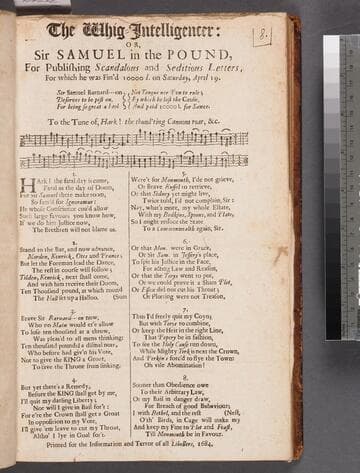 The Whig-Intelligencer:
OR,
Sir SAMUEL in the POUND,
For Publishing Scandalous and Seditious Letters,
For which he was Fin'd 10000 l. on Saturday, April 19.
8.
Sir Samuel Barnard---on
Deserves to be pist on,
For being so great a Fool
Not Tongue nor Pen to rule;
By which he lost the Cause,
And paid 10000 l. for Sauce.
To the Tune of, Hark! the thund'ring Cannons roar, &c.
1.
HArk! the fatal day is come,
Fatal as the day of Doom,
Sir Samuel there make room,
So fam'd for Ignoramus:
He whose Conscience cou'd allow
Such large favours you know how,
If we do him Justice now,
The Brethren will not blame us.
2.
Stand to the Bar, and now advance,
But let the Foreman lead the Dance,
The rest in course will follow;
And wish him receive their Doom,
Ten Thousand pound, at which round
The Hall set up a Halloo. (Sum
3.
Brave Sir Barnard---on now,
Who no Main would e'er allow
To lose ten thousand at a throw,
Was pleas'd to all mens thinking:
Ten thousand pounds! a dismal note,
Who before had giv'n his Vote,
Not to give the KING a Groat,
To save the Throne from sinking.
4.
But yet there's a Remedy,
Before the KING shall get by me,
I'll quit my darling Liberty;
Nor will I give in Bail for't:
For e're the Crown shall get a Groat
In opposition to my Vote,
I'll give 'em leave to cut my Throat,
Altho' I lye in Goal for't.
5.
Were't for Monmouth, I'de not grieve,
Or Brave Russel to retrieve,
Or that Sidney yet might live,
Twice told, I'd not complain, Sir:
Nay, what's more, my whole Estate,
With my Bodkins, Spoons, and Plate,
So I might reduce the State
To a Commonwealth again, Sir.
6.
Or that Mon. were in Grace,
Or Sir Sam. in Jeffery's place,
To spit his Justice in the Face,
For acting Law and Reason,
Or that the Torys went to pot,
Or we could prove it a Sham Plot,
Or Essex did not cut his Throat;
Or Plotting were not Treason,
7.
Thus I'd freely quit my Coyn;
But with Torys to combine,
Or keep the Heir in the right Line,
That Popery be in fashion,
To see the Holy Cause run down,
While Mighty York is next the Crown,
And Perkin forc'd to flye the Town:
Oh vile Abomination!
8.
Sooner than Obedience owe
To their Arbitrary Law,
Or my Bail in danger draw,
For Breach of good Behaviour;
I with Bethel, and the rest (Nest,
O'th' Birds, in Cage will make my
And keep my Fine to Plot and Feast,
Till Monmouth be in Favour.
Printed for the Information and Terror of all Libellers, 1684.